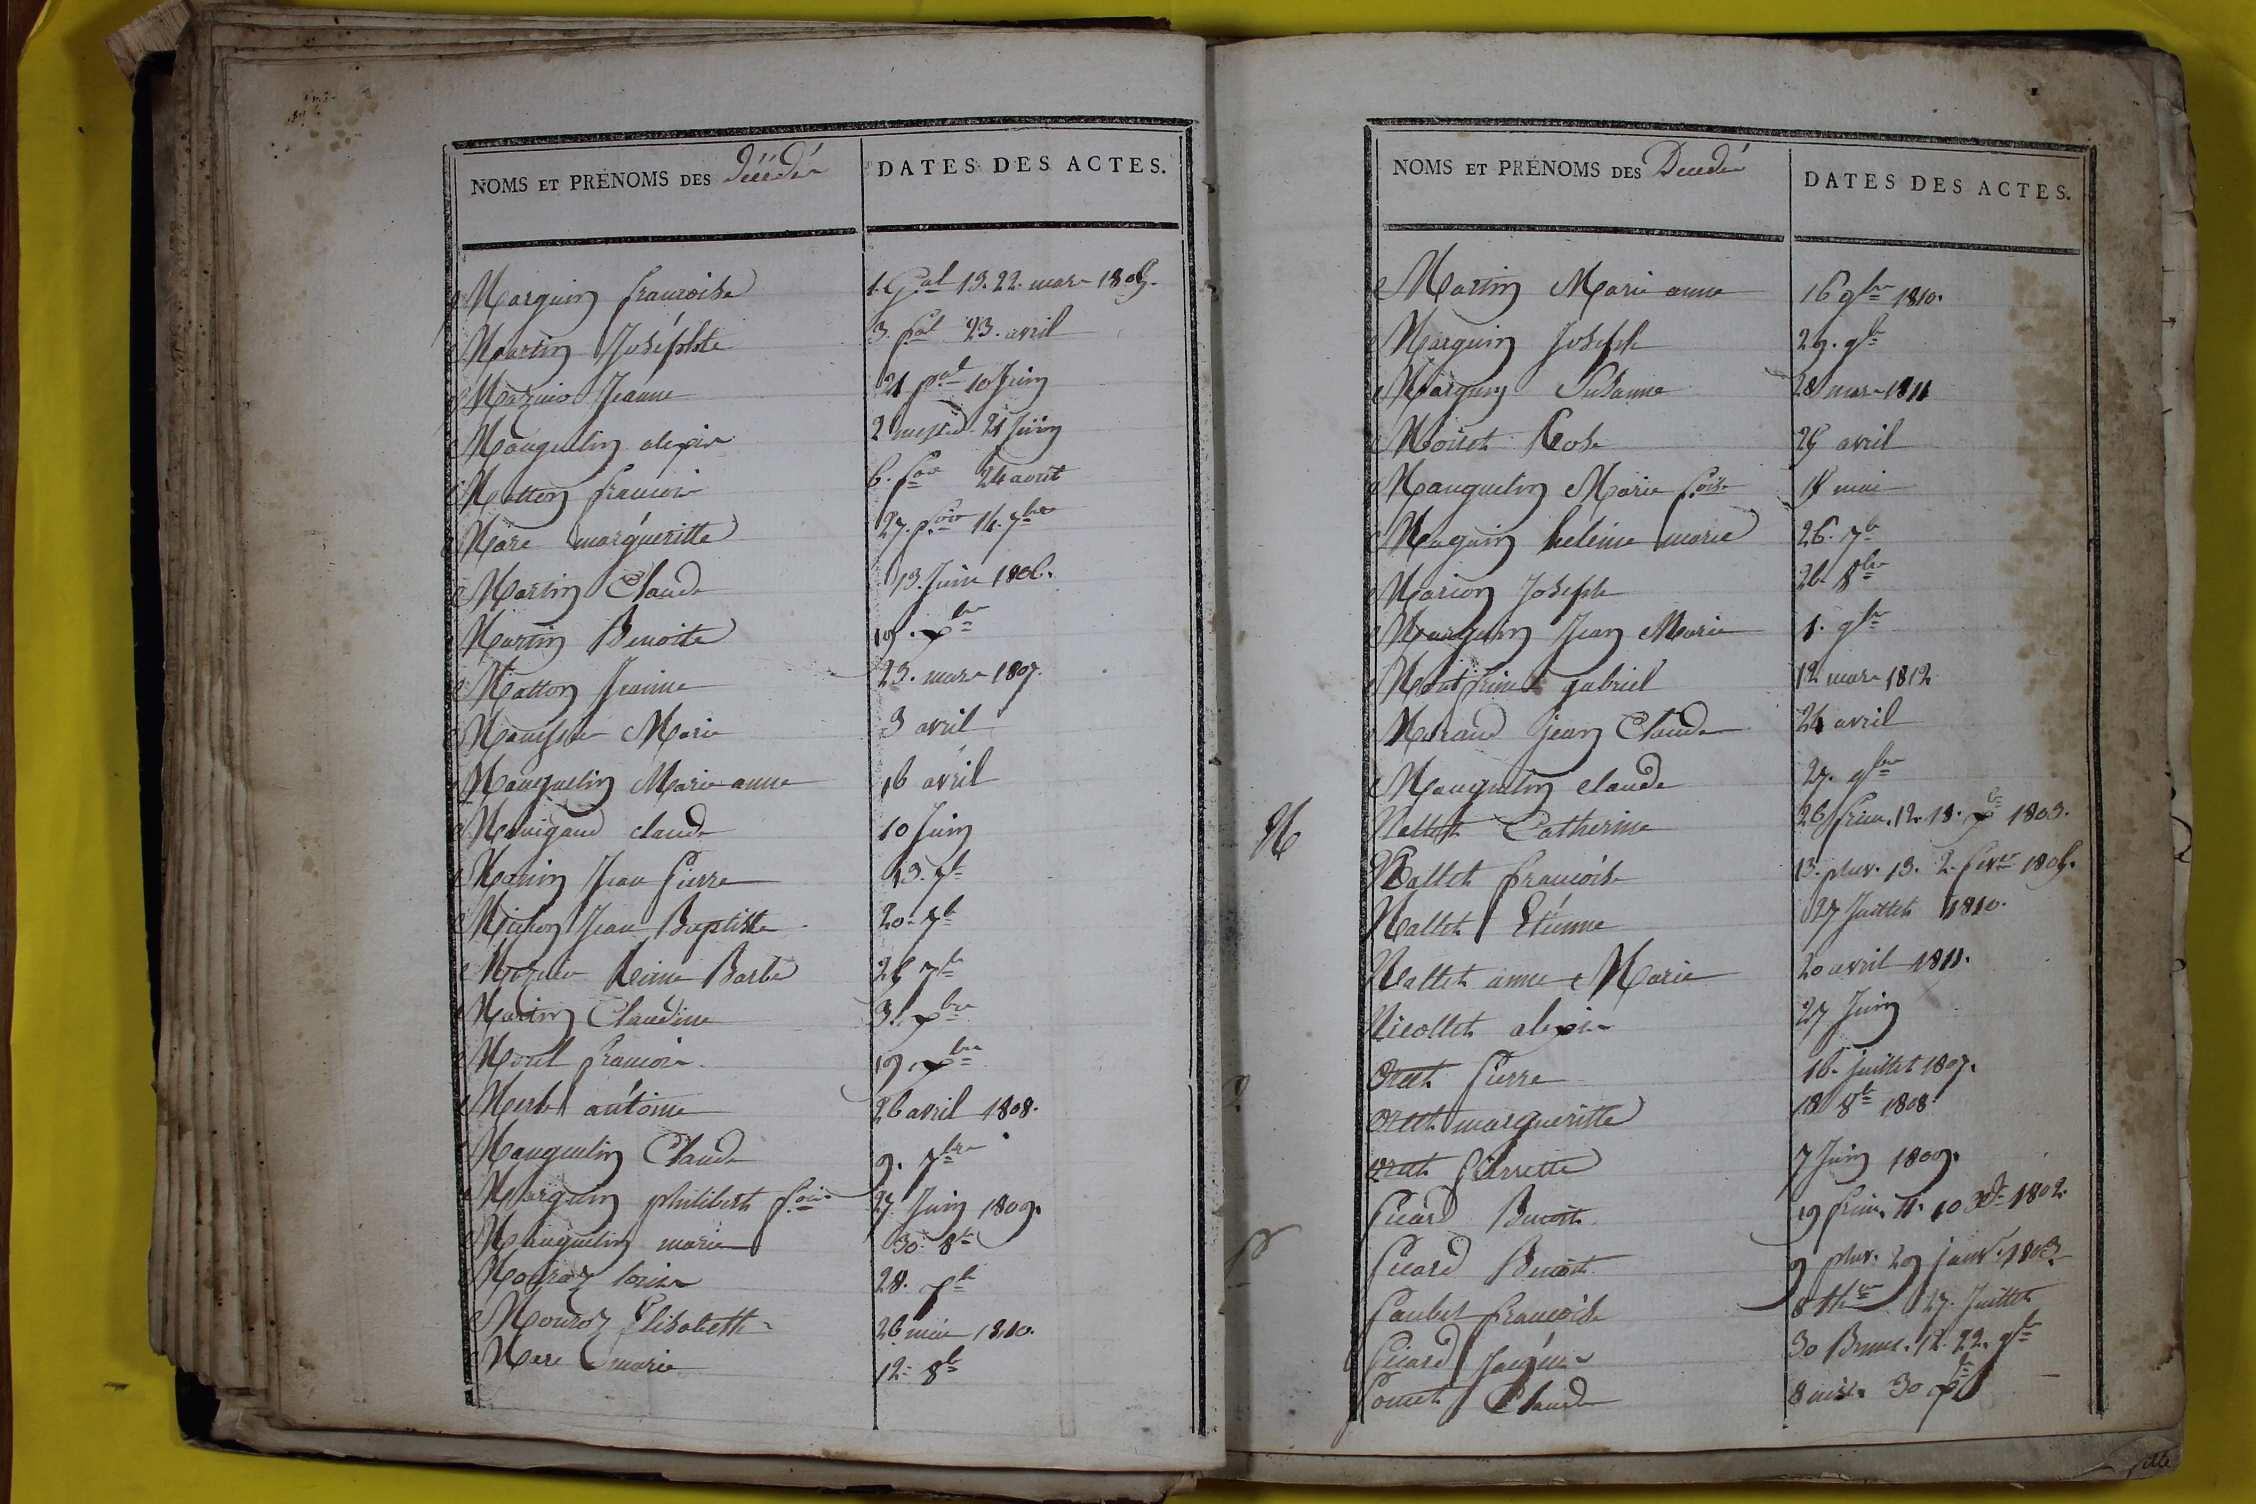 NOMS ET PRÉNOMS DES Décédés DATES DES ACTES.
Marguin francoise 1. Gal 13. 22. mars 1805.
Martin Joséphte 3. fal 23. avril
Mazuir Jeanne 21 pal 10 Juin
Mauguelin alexis 2 messid. 21 Juin
Matton francois 6. for 24 aout
Mare margueritte 27. for 14. 7bre
Martin Claude 13. Juin 1806.
Martin Benoite 19. xbre
Matton Jeanne 23. mars 1807.
Marie 3 avril
Mauguelin Marie anne 16 avril
claude 10 Juin
Monin Jean Pierre 13. 7b
Michon Jean Baptiste 20. 7b
Reine Barbe 26 7b
Martin Claudine 31. xbre
Morel francois 19. xbre
Merle antoine 26 avril 1808.
Mauguelin Claude 9. 7bre
Marguin philibert fois 27 Juin 1809.
Mauguelin marie 30. 8b
Louise 28. xb
Elisabeth 26 mai 1810.
Mare marie 12. 8b
NOMS ET PRÉNOMS DES Décédés DATES DES ACTES.
Martin Marie anne 16 9bre 1810.
Marguin Joseph 29. 9b
Marguin Susanne 28 mars 1811
Moiret Rose 25 avril
Mauguelin Marie foise 18 mai
Maguin heleine marie 26. 7b
Marion Joseph 26 8bre
Marguin Jean Marie 1. 9bre
Montfrin gabriel 12 mars 1812
Morand Jean Claude 24 avril
Mauguelin claude 27. 9bre
N Nallet Catherine 26 frim. 12. 18. xb 1803.
Nallet francoise 13. pluv. 13. 2. fevr 1805.
Nallet Etienne 27 Juillet 1810.
Nallet anne Marie 20 avril 1811.
Nicollet alexis 27 Juin
Orset Pierre 16. juillet 1807.
Orset margueritte 18 8b 1808.
Orset Pierrette 7 Juin 1809.
P Picard Benoit 19 frim. 11. 10 Xb 1802.
Picard Benoit 9 pluv. 29 janv. 1803.
Paulet francoise 8 ther 27. Juillet
Picard Jacques 30 Brum. 12. 22. 9b
Pomet Claude 8 niv. 30 xb